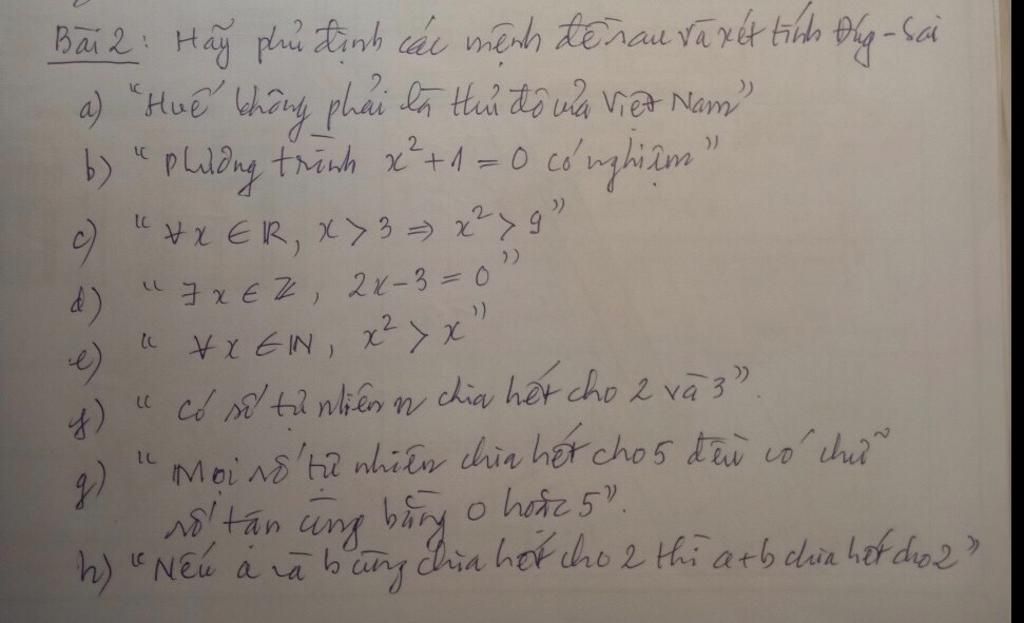 Bài 2: Hãy phủ định các mệnh đề sau và xét tính Đúg - Sai
a) "Huế không phải là thủ đô của Việt Nam"
b) "Phương trình x² + 1 = 0 có nghiệm"
c) "∀x ∈ ℝ, x > 3 ⇒ x² > 9"
d) "∃x ∈ ℤ, 2x - 3 = 0"
e) "∀x ∈ ℕ, x² > x"
f) "Có số tự nhiên n chia hết cho 2 và 3".
g) "Mọi số tự nhiên chia hết cho 5 đều có chữ
số tận cùng bằng 0 hoặc 5".
h) "Nếu a và b cùng chia hết cho 2 thì a+b chia hết cho 2"